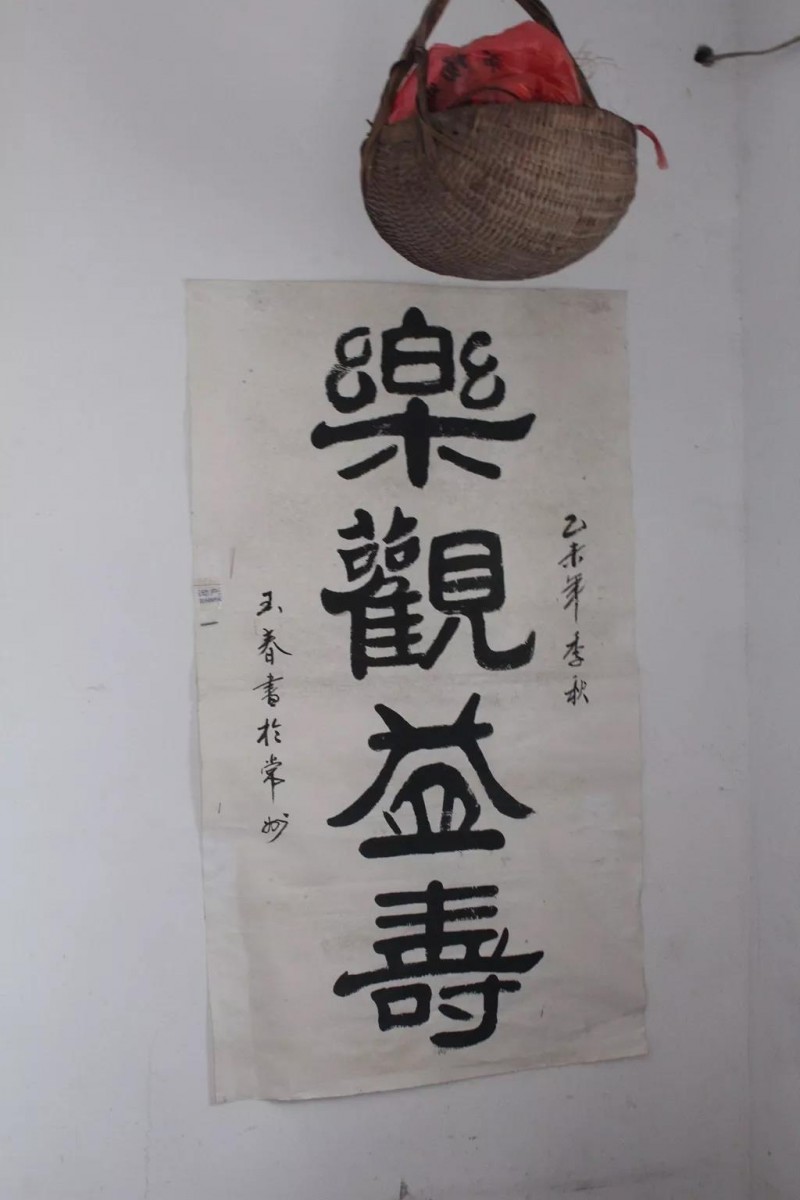 樂觀益壽
乙未年季秋
玉春書於常州